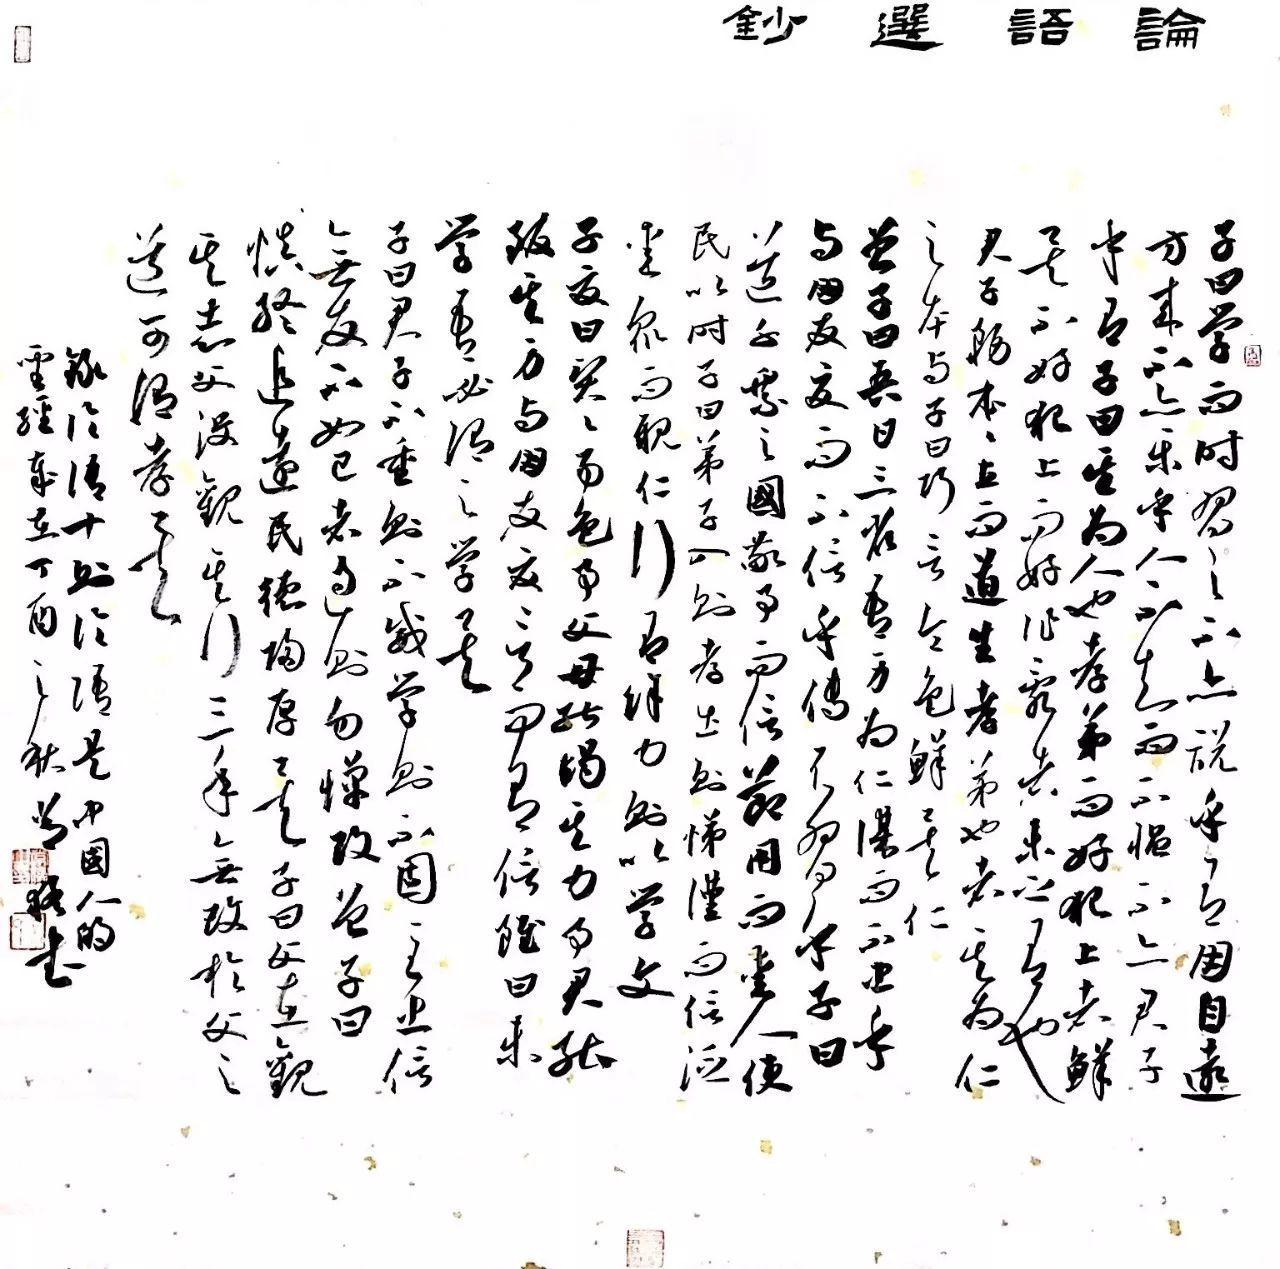 論語選鈔
子曰学而时習之不亦説乎有朋自遠
方来不亦乐乎人不知而不愠不亦君子
乎有子曰其为人也孝弟而好犯上者鲜
矣不好犯上而好作乱者未之有也
君子務本本立而道生孝弟也者其为仁
之本与子曰巧言令色鲜矣仁
曾子曰吾日三省吾身为人谋而不忠乎
与朋友交而不信乎傳不習乎子曰
道千乘之國敬事而信節用而爱人使
民以时子曰弟子入则孝出则悌谨而信泛
爱众而親仁行有餘力则以学文
子夏曰贤贤易色事父母能竭其力事君能
致其身与朋友交言而有信雖曰未
学吾必謂之学矣
子曰君子不重则不威学则不固主忠信
無友不如己者過则勿憚改曾子曰
慎終追遠民德归厚矣子曰父在觀
其志父没觀其行三年無改於父之
道可謂孝矣
録论语十则论语是中国人的
聖經 丁酉之秋 书